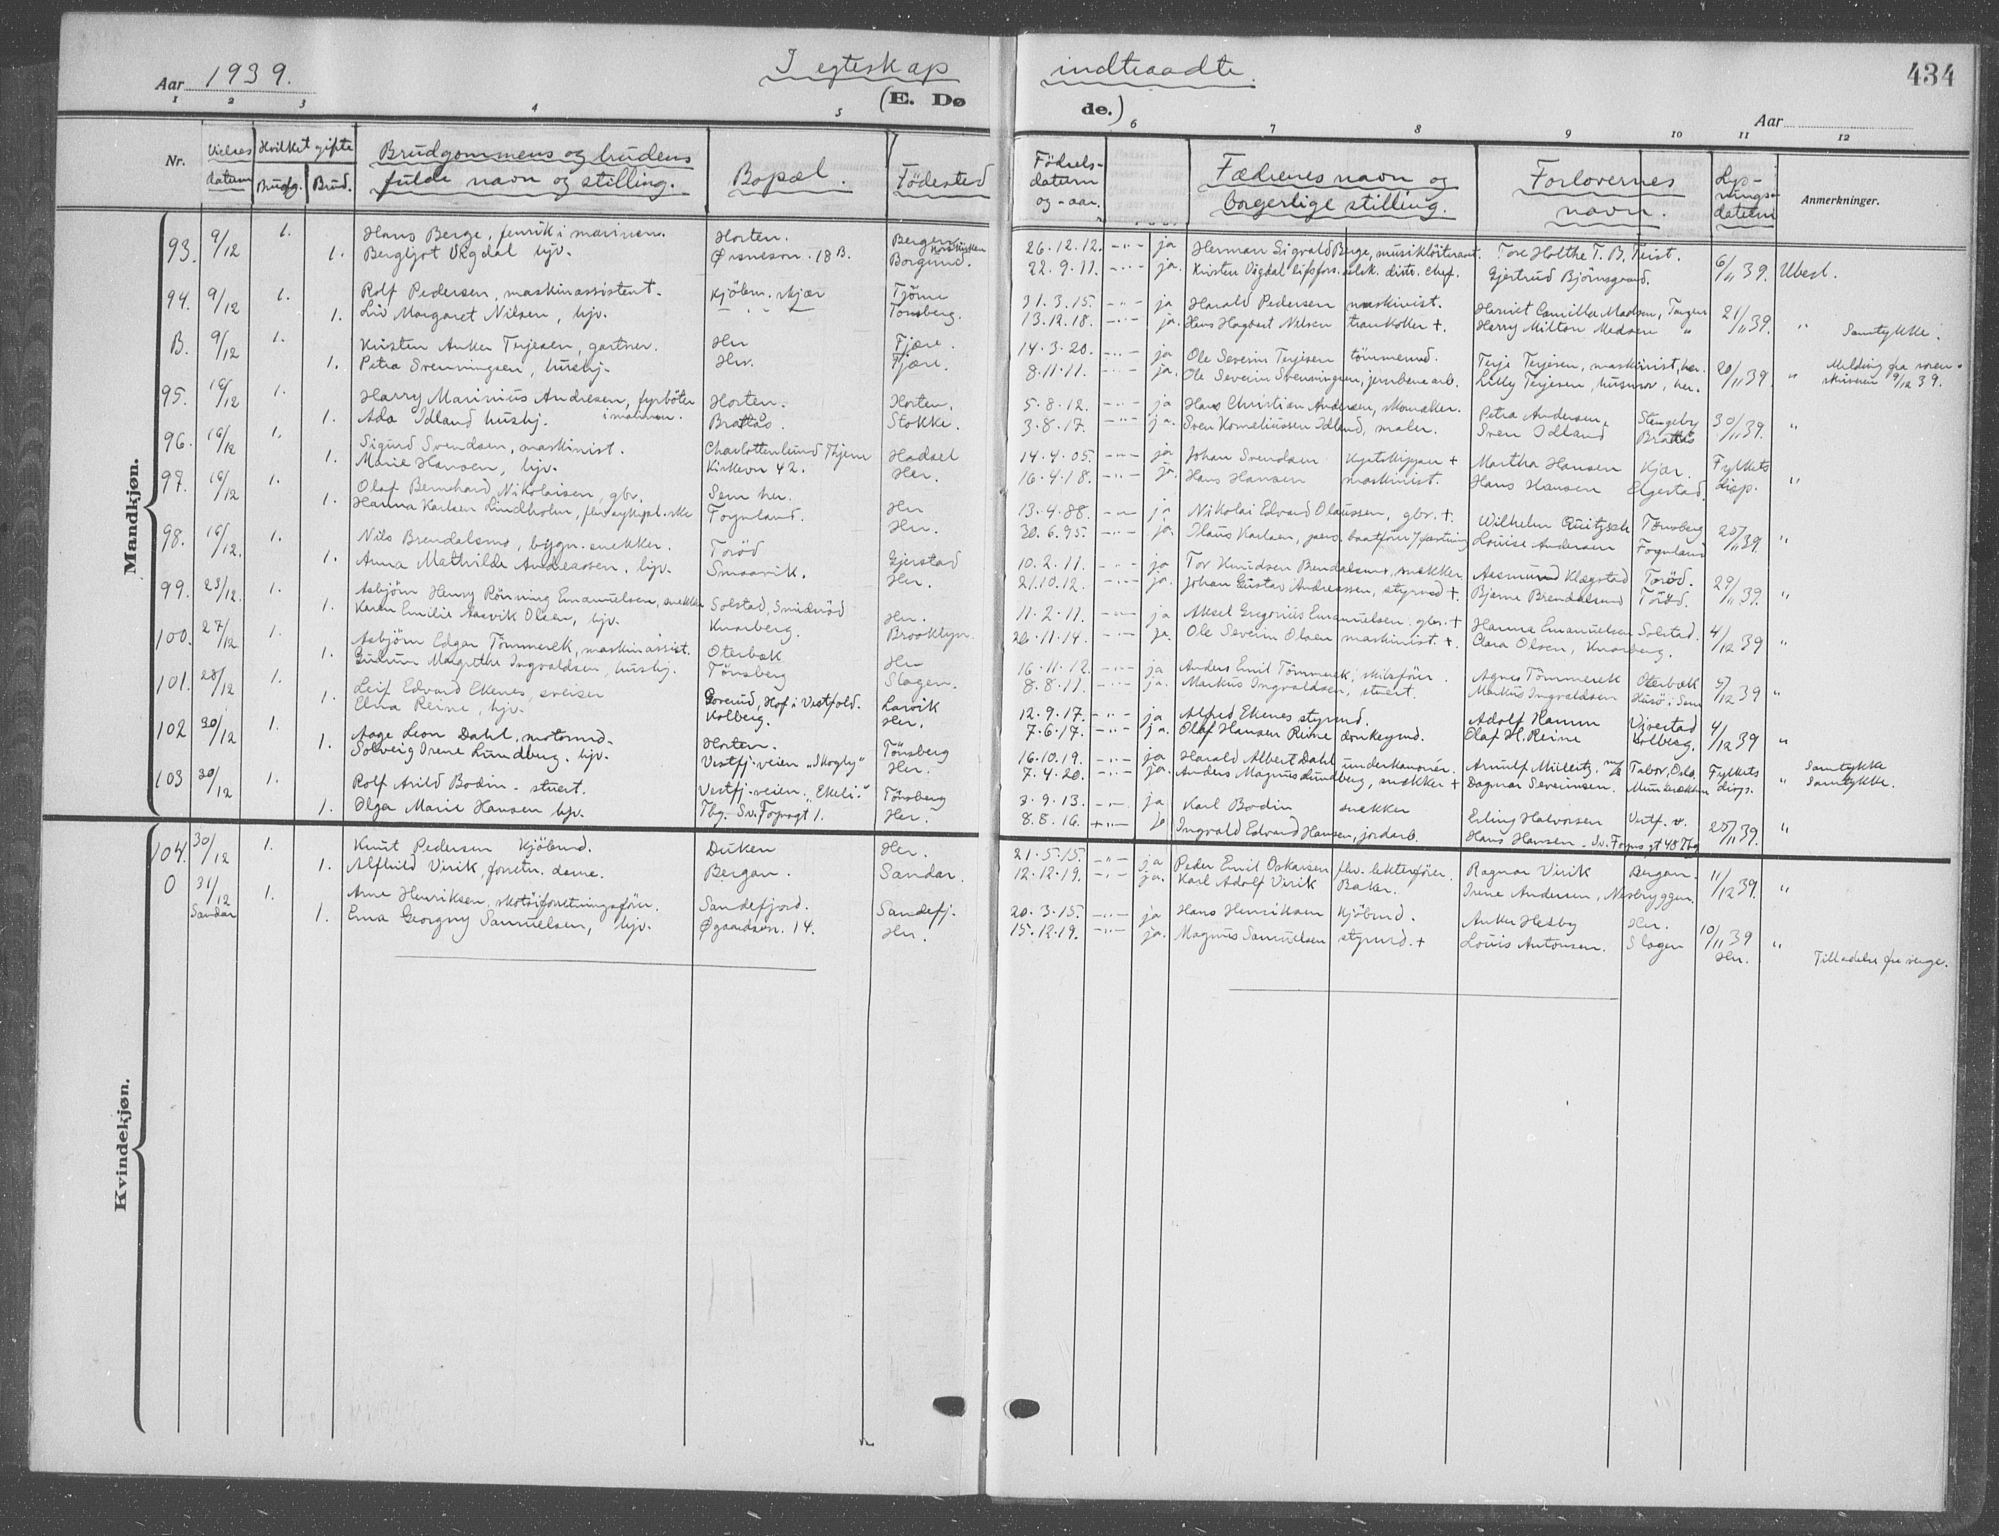 Aar 1939.
I egteskap indtraadte.
434
(E. Døde.)
Aar
1 2 3 4 5 6 7 8 9 10 11 12
Nr. Vielses datum Hvilket gifte Brudg. Brud. Brudgommens og brudens fulde navn og stilling. Bopæl. Fødested Fødsels-datum og -aar. Fædrenes navn og borgerlige stilling. Forlovernes navn. Lysningsdatum Anmerkninger.
Mandkjøn.
93. 9/12 1. Hans Berge, fenrik i marinen. Horten. Bergen 26.12.12. -"- ja Herman Sigvald Berge, Tore Holthe T. B. Teist. 6/11 39. Ubesl.
1. Bergljot Vigdal hjv. Ørsneson. 18 B. Borgund. 22.9.11. -"- ja. Kristen Vigdal distr. chef. Gjertrud Björnsgaard.
94. 9/12 1. Rolf Pedersen, maskinassistent. Kjöbm. skjær Tjöme 31.3.15. -"- ja Harald Pedersen maskinist. Harriet Camilla Madsen, 21/11 39. "
1. Liv Margaret Nilsen, hjv. -"- Tönsberg. 13.12.18. -"- ja. Hans Hagbart Nilsen trankoker +. Harry Milton Madsen " Samtykke.
B. 9/12 1. Kristen Anker Terjesen, gartner. Her Fjære. 14.3.20. -"- ja Ole Severin Terjesen tömmermd. Terje Terjesen, maskinist, her. 20/11 39. " Melding fra sorenskriveren 9/12 39.
1. Petra Svenningsen, hushj. Her. Fjære. 8.11.11. -"- ja. Ole Severin Svenningsen, jernbanearb. Lilly Terjesen, husmor, her.
95. 16/12 1. Harry Marinius Andresen, fyrböter i marinen. Horten. Horten. 5.8.12. -"- ja Hans Christian Andersen, skomaker. Petra Andersen, Slengeby 30/11 39. "
1. Ada Idland hushj. Brattås. Stokke. 3.8.17 -"- ja. Sven Korneliussen Idland, maler. Sven Idland, Brattås
96. 16/12 1. Sigurd Svendsen, maskinist. Charlottenlund Thjem Hadsel 14.4.05. -"- ja Johan Svendsen kystskipper + Martha Hansen Kjær. Fylkets disp. "
1. Marie Hansen, hjv. Kirkevn 42. Her. 16.4.18. -"- ja. Hans Hansen maskinist. Hans Hansen Elgestad.
97. 16/12 1. Olaf Bernhard Nikolaisen, gbr. Sem her. Her 13.4.88. -"- ja Nikolai Edvard Olaussen, gbr. +. Wilhelm Tönsberg 25/11 39. "
1. Hanna Karlsen Lindholm, Fognland. Her. 20.6.95. -"- ja. Klaus Karlsen, Louise Andersen Fognland
98. 16/12. 1. Nils Brendalsmo, bygn. snekker. Toröd Gjerstad 10.2.11. -"- ja Tor Knudsen Brendalsmo, snekker Aasmund Klægstad Toröd. 29/11 39. "
1. Anna Mathilde Andreassen, hjv. Smaavik. Her. 21.10.12. -"- ja. Johan Gustav Andreassen, styrmd +. Bjarne Brendalsmo Toröd.
99. 23/12. 1. Asbjörn Henry Rönning Emanuelsen, snekker Solstad, Smidsröd Her. 11.2.11. -"- ja Aksel Gregorius Emanuelsen gbr. + Hanna Emanuelsen Solstad. 4/12 39 "
1. Karen Emilie Aasvik Olsen, hjv. Knarberg. Brooklyn. 26.11.14. -"- ja. Ole Severin Olsen maskinist. + Clara Olsen, Knarberg.
100. 27/12 1. Asbjörn Edgar Tömmerek, maskinassist. Oterbæk Her 16.11.12. -"- ja Anders Emil Tömmerek, skibsförer. Agnes Tömmerek Oterbæk 5/12 39 "
1. Gudrun Margrethe Ingvaldsen, hushj. Tönsberg Slagen. 8.8.11. -"- ja. Markus Ingvaldsen, stuert. Markus Ingvaldsen Husö i Sem
101. 28/12 1. Leif Edvard Ekenes, sveiser Goverud, Hof i Vestfold. Larvik 12.9.17. -"- ja Alfred Ekenes styrmd. Adolf Hamm Vivestad 4/12 39 "
1. Elna Reine, hjv. Kolberg. Her. 7.6.17. -"- ja. Olaf Hansen Reine donkeymd. Olaf H. Reine Kolberg.
102 30/12 1. Aage Leon Dahl, motormd. Horten. Tönsberg 16.10.19. -"- ja Harald Albert Dahl underkanonér. Arnulf Tabor, Oslo. Fylkets disps. " Samtykke
1. Solveig Irene Lundberg, hjv. Vestfj. veien, "Skogly" Her. 7.4.20. -"- ja. Anders Magnus Lundberg, snekker + Dagmar Severinsen. Munkerekken Samtykke.
103 30/12 1. Rolf Arild Bodin, stuert. Vestfj. veien, "Ekeli." Tönsberg 7.9.13. -"- ja Karl Bodin snekker Erling Halvorsen Vestf. v. 25/11 39. "
1. Olga Marie Hansen hjv. Tbg. Sv. Foynsgt 1. Her. 8.8.16. -"- ja Ingvald Edvard Hansen, jordarb. Hans Hansen Sv. Foyns gt 48 Tbg
Kvindekjøn.
104. 30/12 1. Knut Pedersen kjöbmd. Duken Her. 21.5.15. -"- ja Peder Emil Oskarsen fhv. lekterförer. Ragnar Virik Bergan. 11/12 39. "
1. Alfhild Virik, forretn. dame. Bergan. Sandar. 12.12.19. -"- ja. Karl Adolf Virik Baker. Irene Andersen, Nesbryggen.
0 31/12 Sandar 1. Arne Henriksen, skotöiforretningsförer. Sandefjord. Sandefj. 20.3.15. -"- ja Hans Henriksen kjöbmd. Anker Hesby Her. 10/11 39 Her. " Tilladelse fra verge.
1. Erna Georgny Samuelsen, hjv. Øgaardsvn. 14. Her. 15.12.19. -"- ja. Magnus Samuelsen styrmd. + Louis Antonsen. Slagen